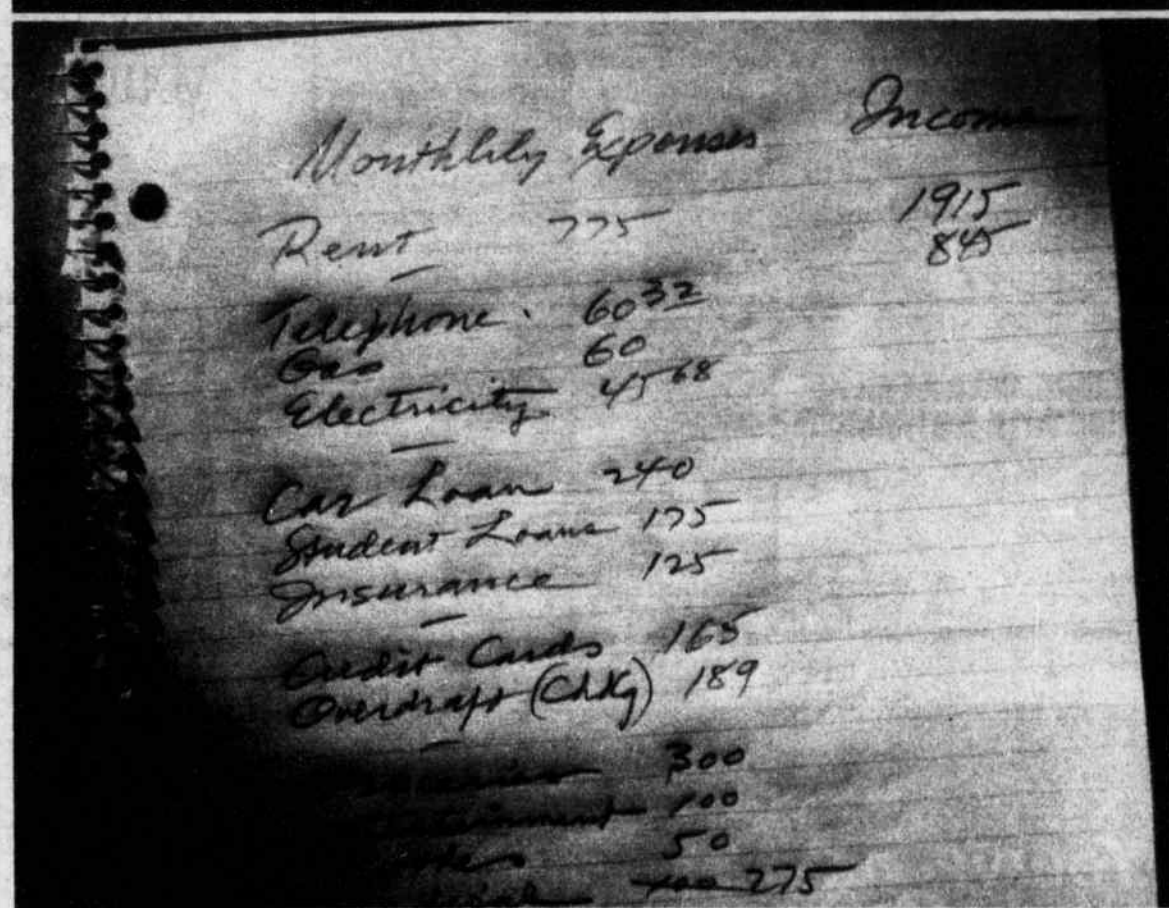 Monthlily Expenses Income
Rent 775 1915
845
Telephone. 60 32
Gas 60
Electricity 45 68
Car Loan 240
Student Loans 175
Insurance 125
Credit Cards 165
Overdraft (Chkg) 189
300
100
50
275